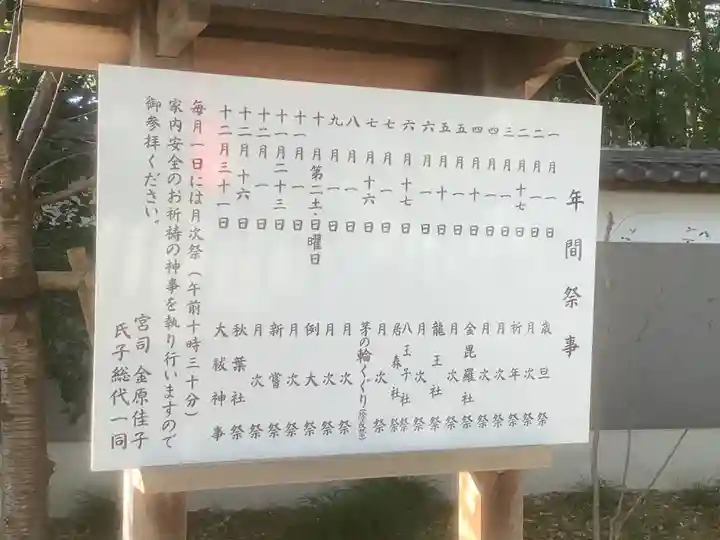 年間祭事
一月一日 歳旦祭
二月一日 月次祭
二月十七日 祈年祭
三月一日 月次祭
四月一日 月次祭
四月十日 金毘羅社祭
五月一日 月次祭
五月十日 龍王社祭
六月一日 月次祭
六月十七日 八王子社祭
居森社祭
七月一日 月次祭
七月十六日 茅の輪くぐり
八月一日 月次祭
九月一日 月次祭
十月第二土・日曜日 例大祭
十一月一日 月次祭
十一月二十三日 新嘗祭
十二月一日 月次祭
十二月十六日 秋葉社祭
十二月三十一日 大祓神事
毎月一日には月次祭(午前十時三十分)
家内安全のお祈祷の神事を執り行いますので
御参拝ください。
宮司 金原佳子
氏子総代一同